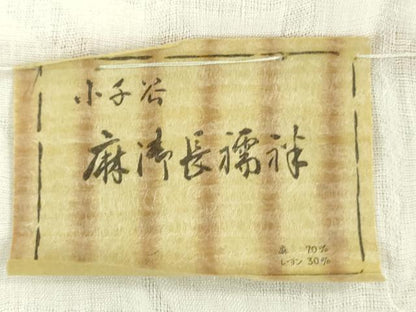 小千谷
麻清長襦袢
麻 70%
レーヨン 30%